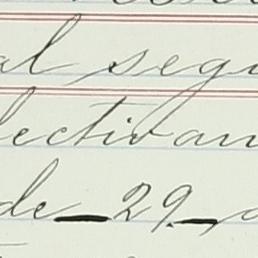 al segu
lectivam
de 29,